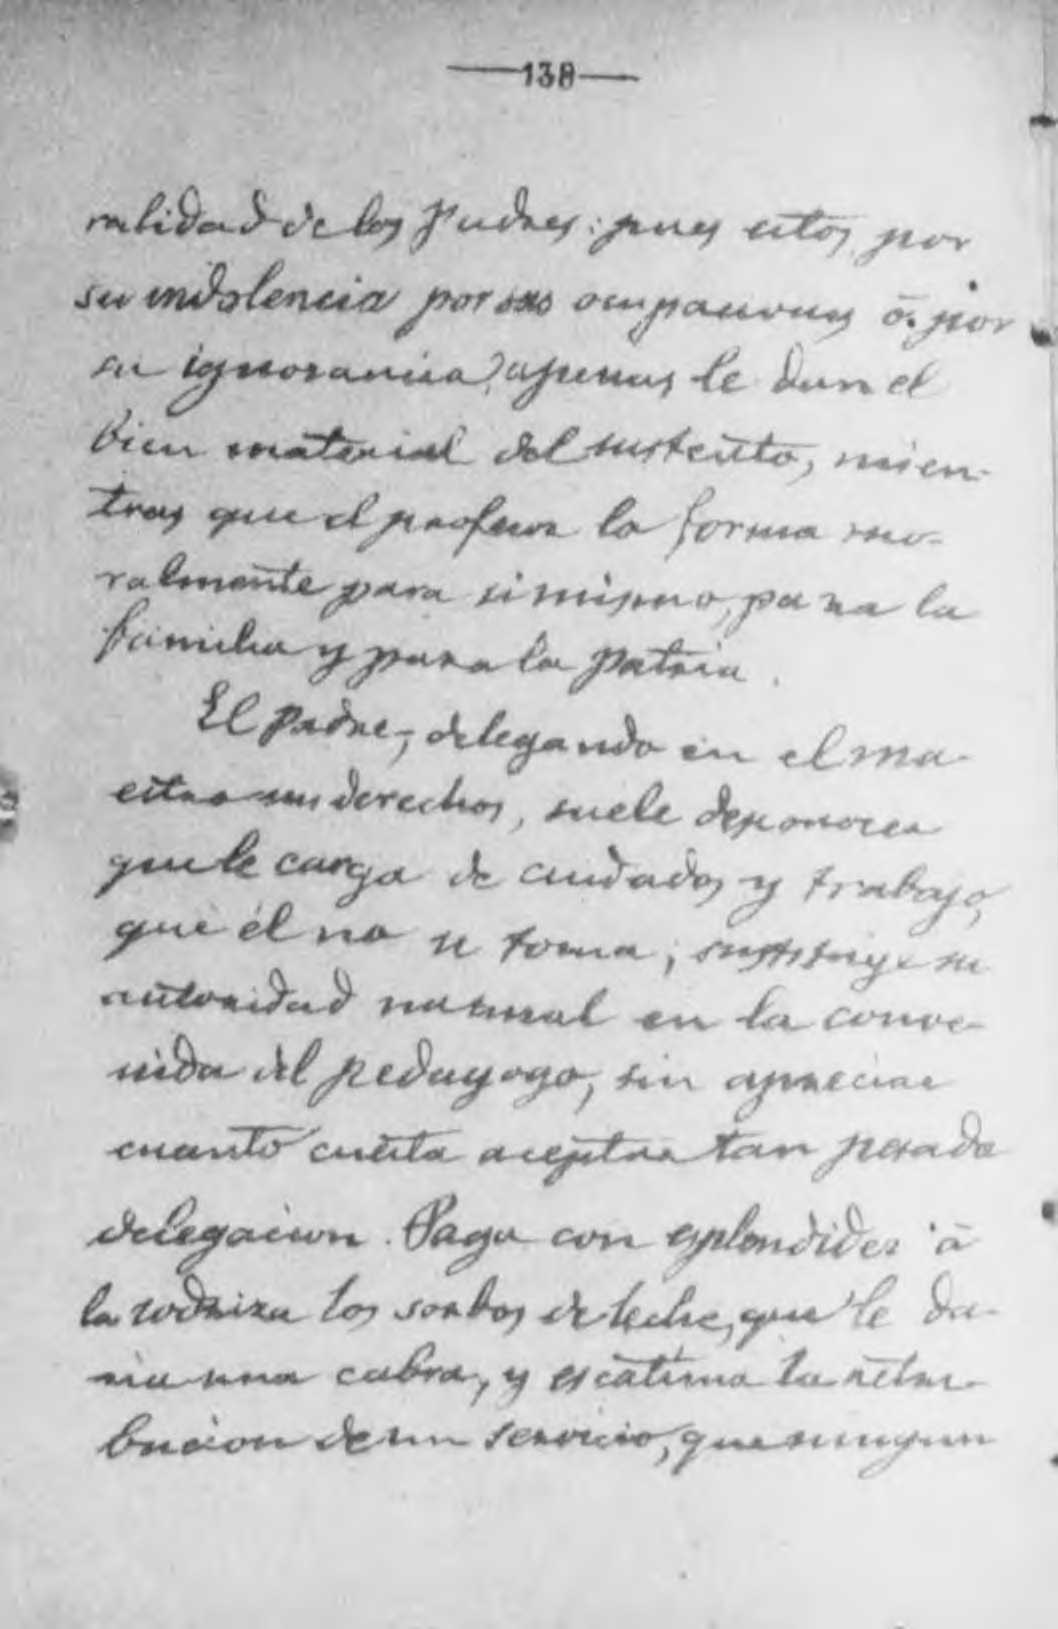 —138—
ralidad de los Padres: pues estos, por
su indolencia por sus ocupaciones ó por
su ignorancia, apenas le dan el
bien material del sustento, mien-
tras que el profesor lo forma mo-
ralmente para si mismo, para la
familia y para la patria.
El Padre, delegando en el ma-
estro sus derechos, suele desconocer
que le carga de cuidados y trabajo,
que él no se toma; sustituye su
autoridad natural en la conve-
nida del pedagogo, sin apreciar
cuanto cuesta aceptar tan pesada
delegacion. Paga con esplendidez á
la nodriza los sorbos de leche, que le da-
ria una cabra, y escatima la retri-
bucion de un servicio, que ningun